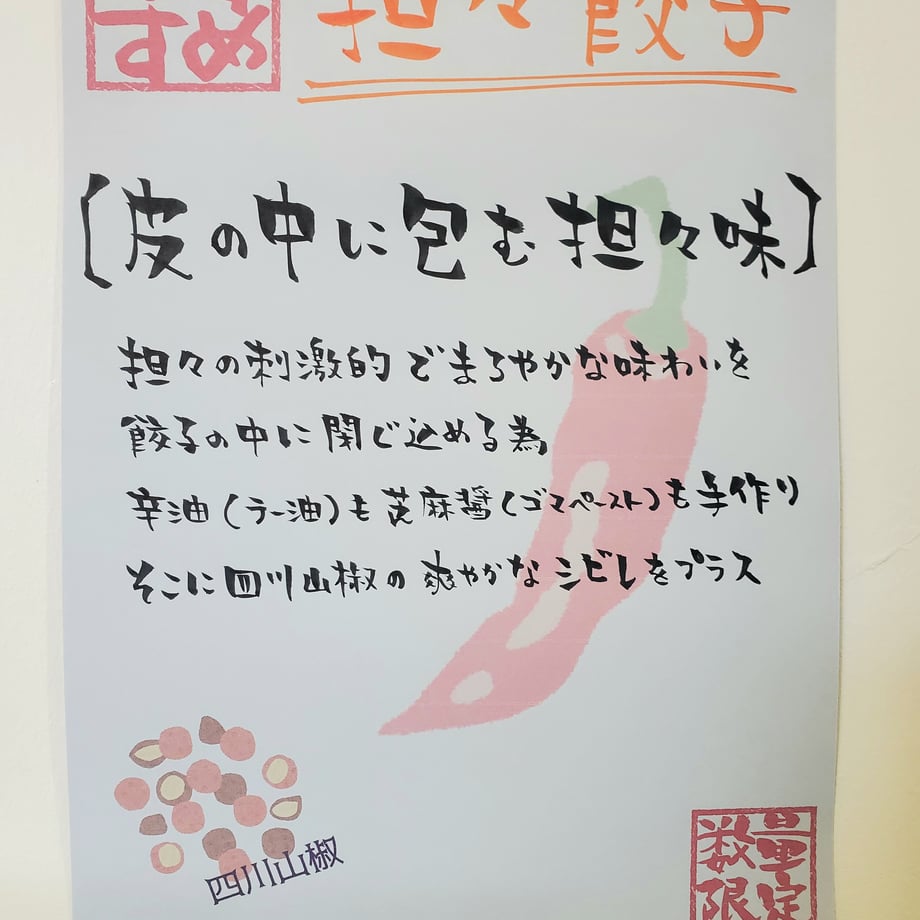 すめ
担々餃子
[皮の中に包む担々味]
担々の刺激的でまろやかな味わいを
餃子の中に閉じ込める為
辛油(ラー油)も芝麻醤(ゴマペースト)も手作り
そこに四川山椒の爽やかなシビレをプラス
四川山椒
数量
限定